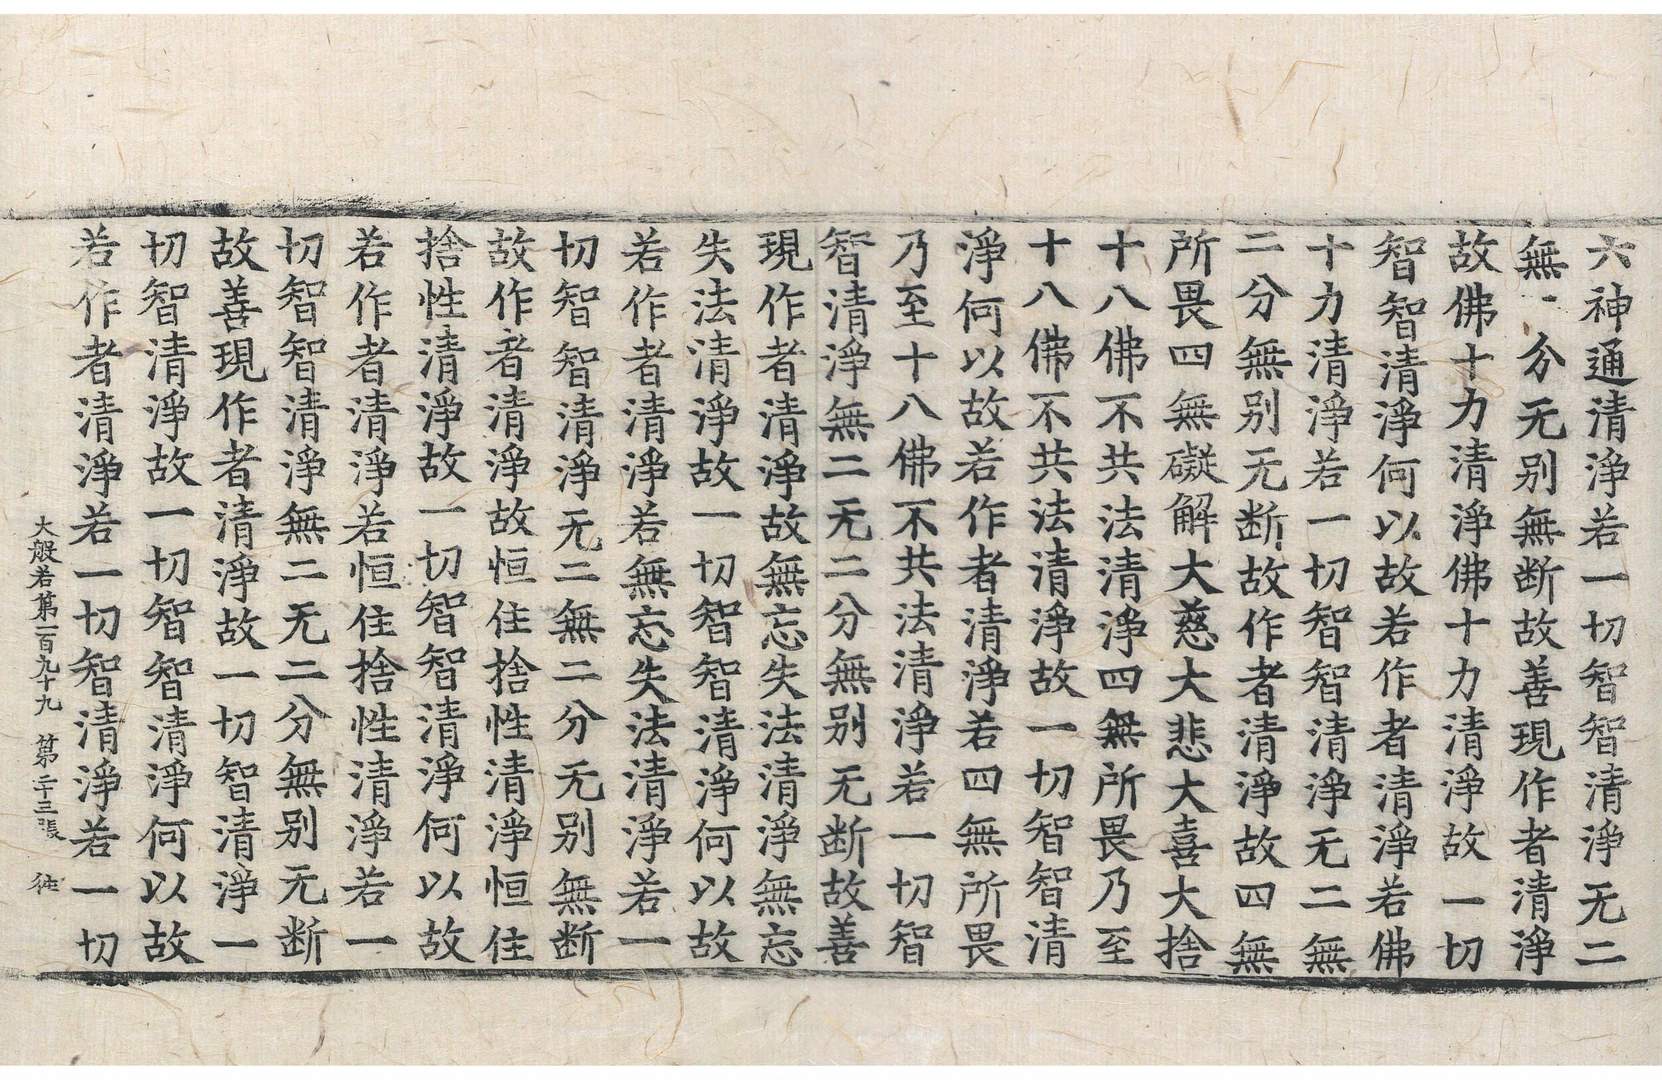 六神通清淨若一切智智清淨无二
無分无别無断故善現作者清淨
故佛十力清淨佛十力清淨故一切
智智清淨何以故若作者清淨若佛
十力清淨若一切智智清淨无二無
二分無别无断故作者清淨故四無
所畏四無礙解大慈大悲大喜大捨
十八佛不共法清淨四無所畏乃至
十八佛不共法清淨故一切智智清
淨何以故若作者清淨若四無所畏
乃至十八佛不共法清淨若一切智
智清淨無二无二分無别无断故善
現作者清淨故無忘失法清淨無忘
失法清淨故一切智智清淨何以故
若作者清淨若無忘失法清淨若一
切智智清淨无二無二分无别無断
故作者清淨故恒住捨性清淨恒住
捨性清淨故一切智智清淨何以故
若作者清淨若恒住捨性清淨若一
切智智清淨無二无二分無别无断
故善現作者清淨故一切智清淨一
切智清淨故一切智智清淨何以故
若作者清淨若一切智清淨若一切
大般若第一百九十九 第二十三張